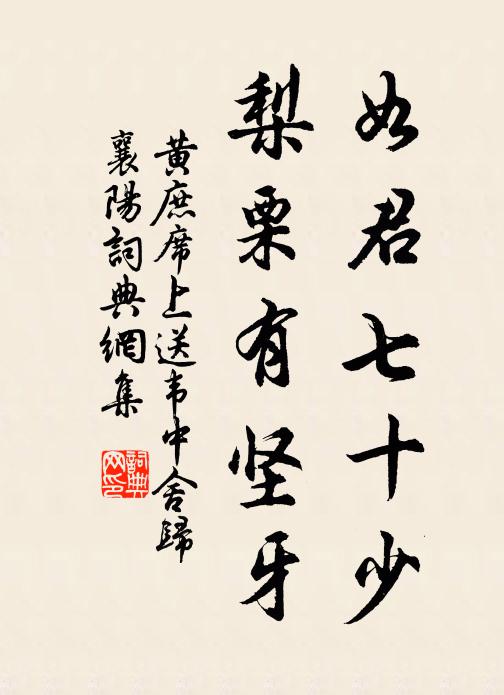 如君七十少
梨栗有坚牙
黄庶席上送韦中舍歸
襄陽詞典網集
詞典网印